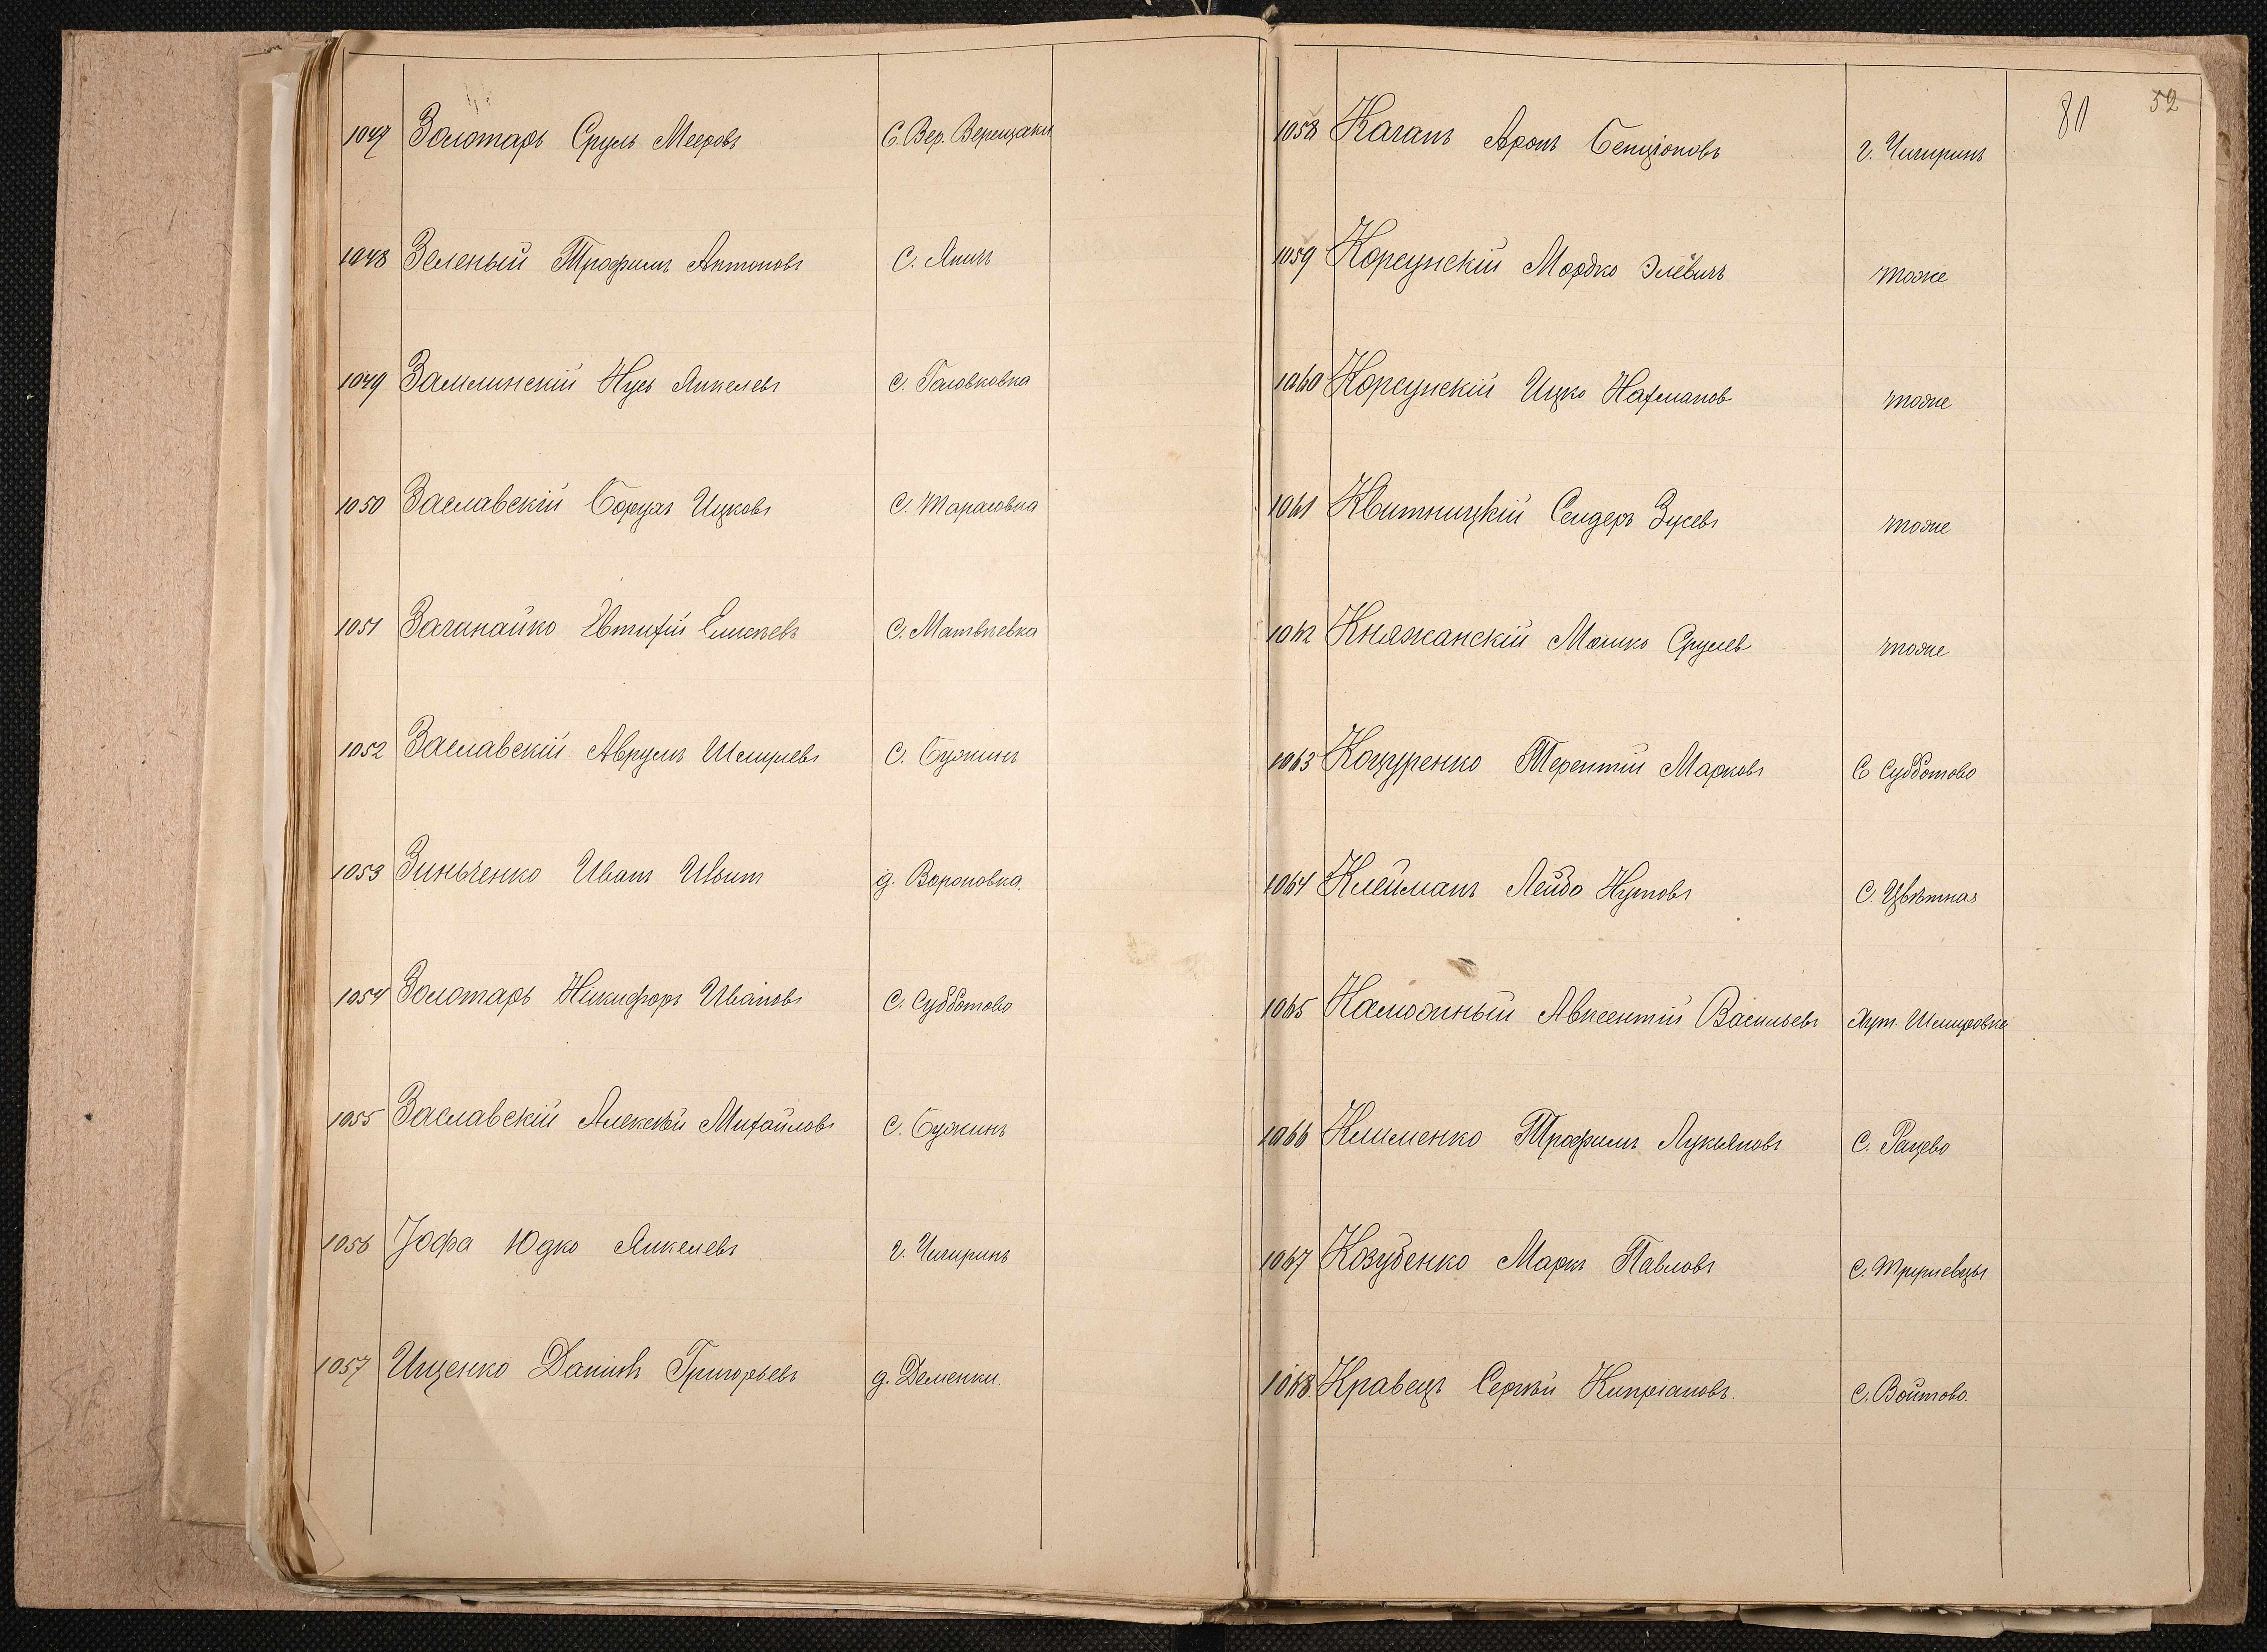 1047 Золотарь Сруль Мееровъ С. Вер. Верещаки
1048 Зеленый Трофимъ Антоновъ С. Яничъ
1049 Замлинскій Нусь Янкелевъ С. Головковка
1050 Заславскій Борухъ Ицковъ С. Тарасовка
1051 Заганайко Евтихій Елисѣевъ С. Матвѣевка
1052 Заславскій Аврумъ Шмулевъ С. Бужинъ
1053 Зинченко Иванъ д. Вороновка.
1054 Золотарь Никифоръ Ивановъ С. Субботово
1055 Заславскій Алексѣй Михайловъ С. Бужинъ
1056 Іофа Юдко Янкелевъ г. Чигиринъ
1057 Ищенко Даніилъ Григорьевъ д. Деменки.
80 52
1058 Каганъ Аронъ Бенціоновъ г. Чигиринъ
1059 Корсунскій Мордко Элевичъ тоже
1060 Корсунскій Ицко Нахманов тоже
1061 Квитницкій Сендеръ Зусевъ тоже
1062 Княжанскій Мошко Срулев тоже
1063 Коцуренко Терентій Марковъ С Субботово
1064 Клейманъ Лейбо Нутовъ С. Цвѣтная
1065 Калюжный Авксентій Васильевъ Хут.
1066 Клименко Трофимъ Лукьяновъ С. Рацево
1067 Козубенко Маркъ Павловъ С. Трушевцы
1068. Кравецъ Сергѣй Кипріановъ. С. Войтово.